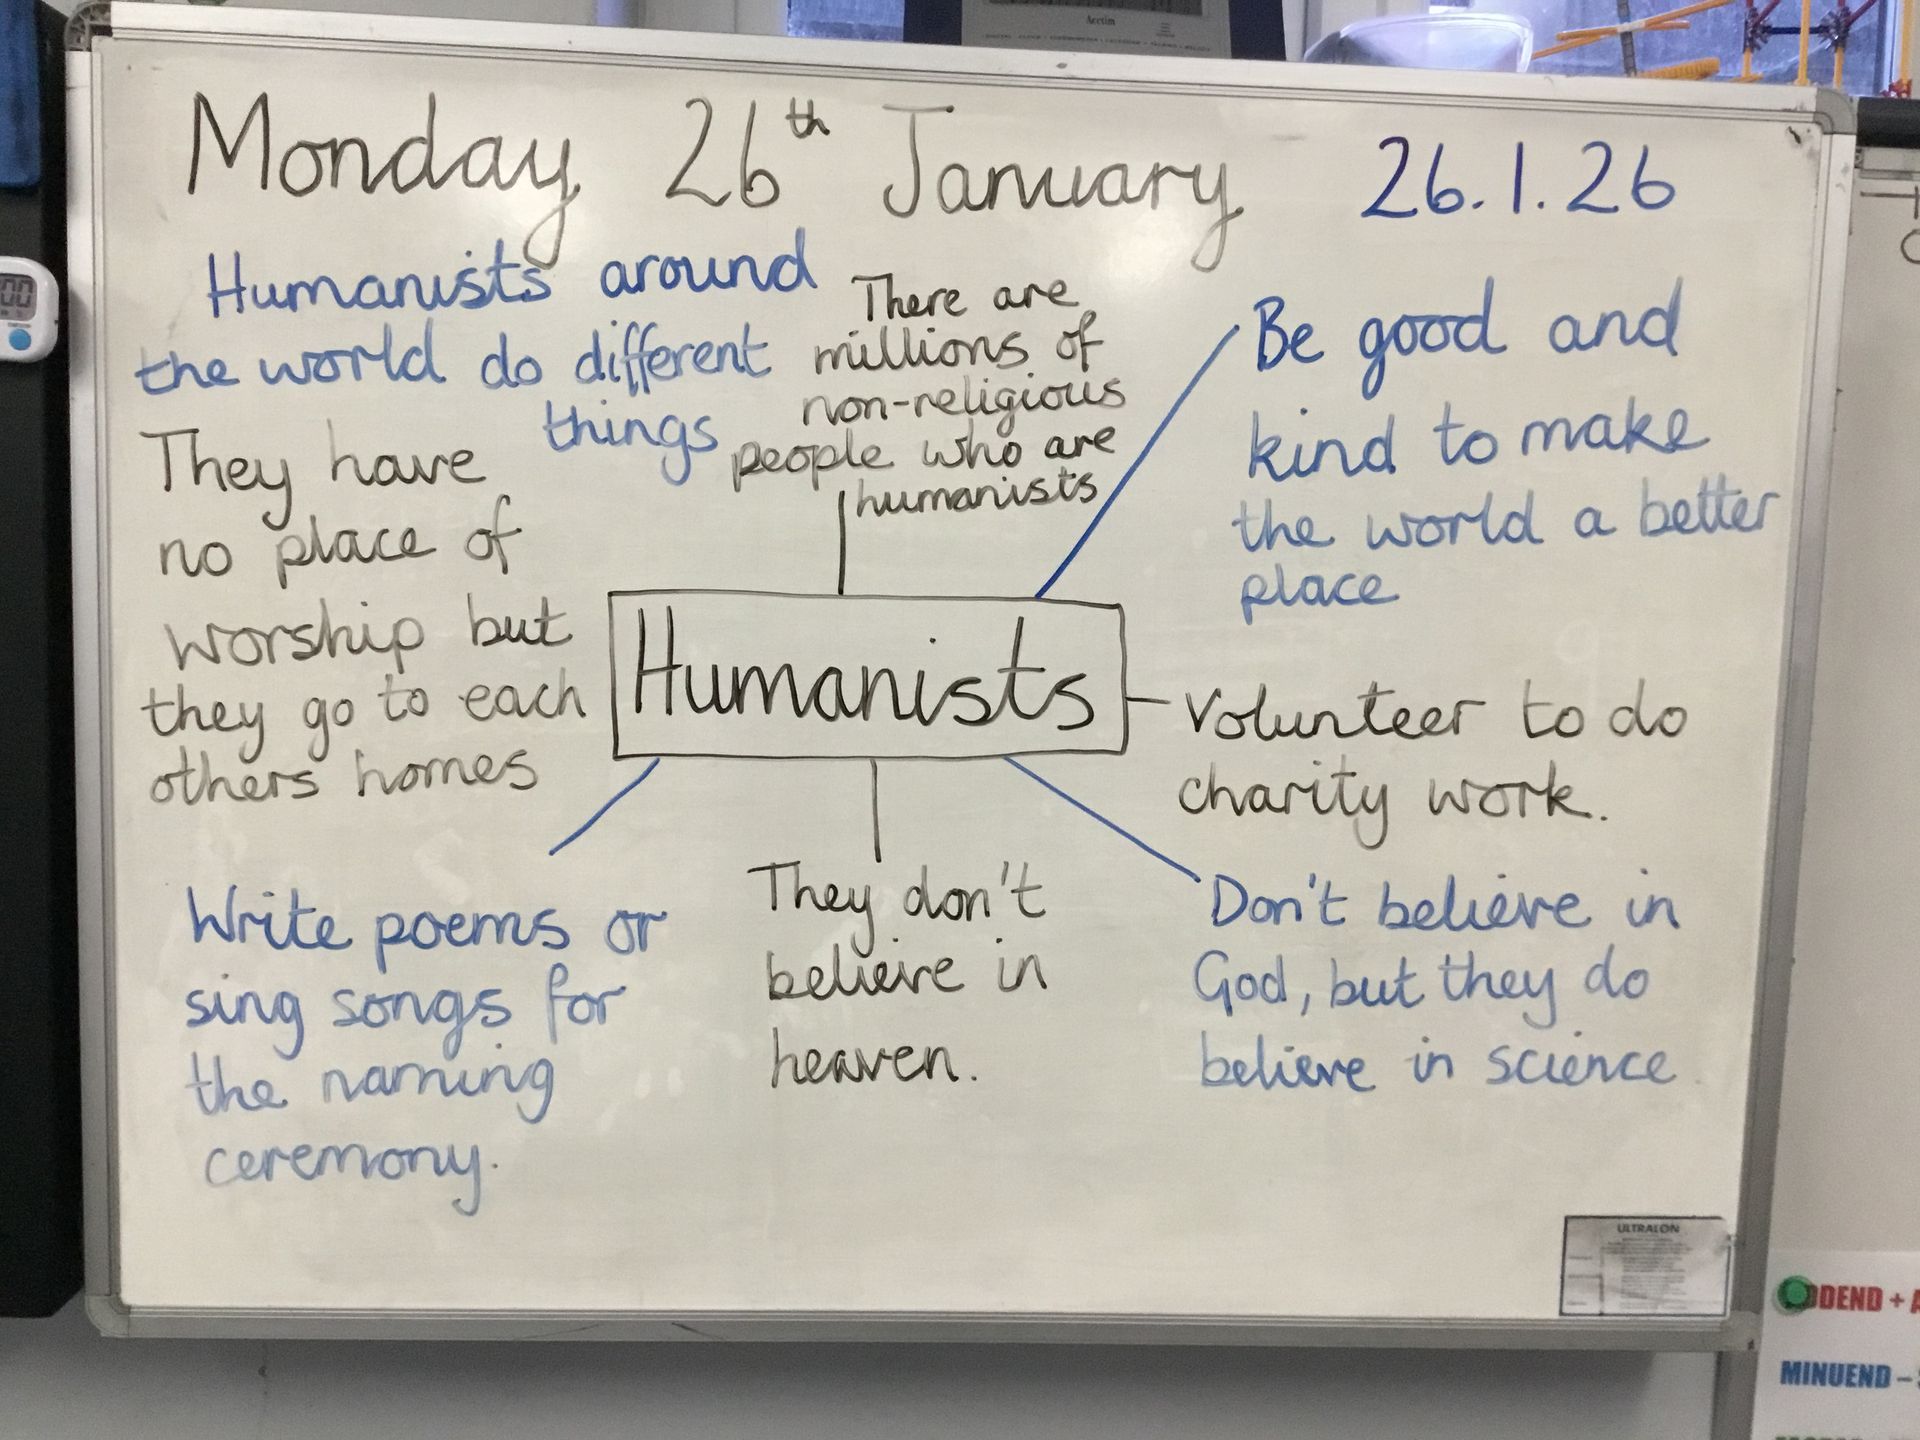 Acctim
Monday 26th January 26.1.26
Humanists around
the world do different
things
There are
millions of
non-religious
people who are
humanists
Be good and
kind to make
the world a better
place
They have
no place of
worship but
they go to each
others homes
Humanists
Volunteer to do
charity work.
Write poems or
sing songs for
the naming
ceremony.
They don't
believe in
heaven.
Don't believe in
God, but they do
believe in science
ULTRALON
DDEND + A
MINUEND -
00